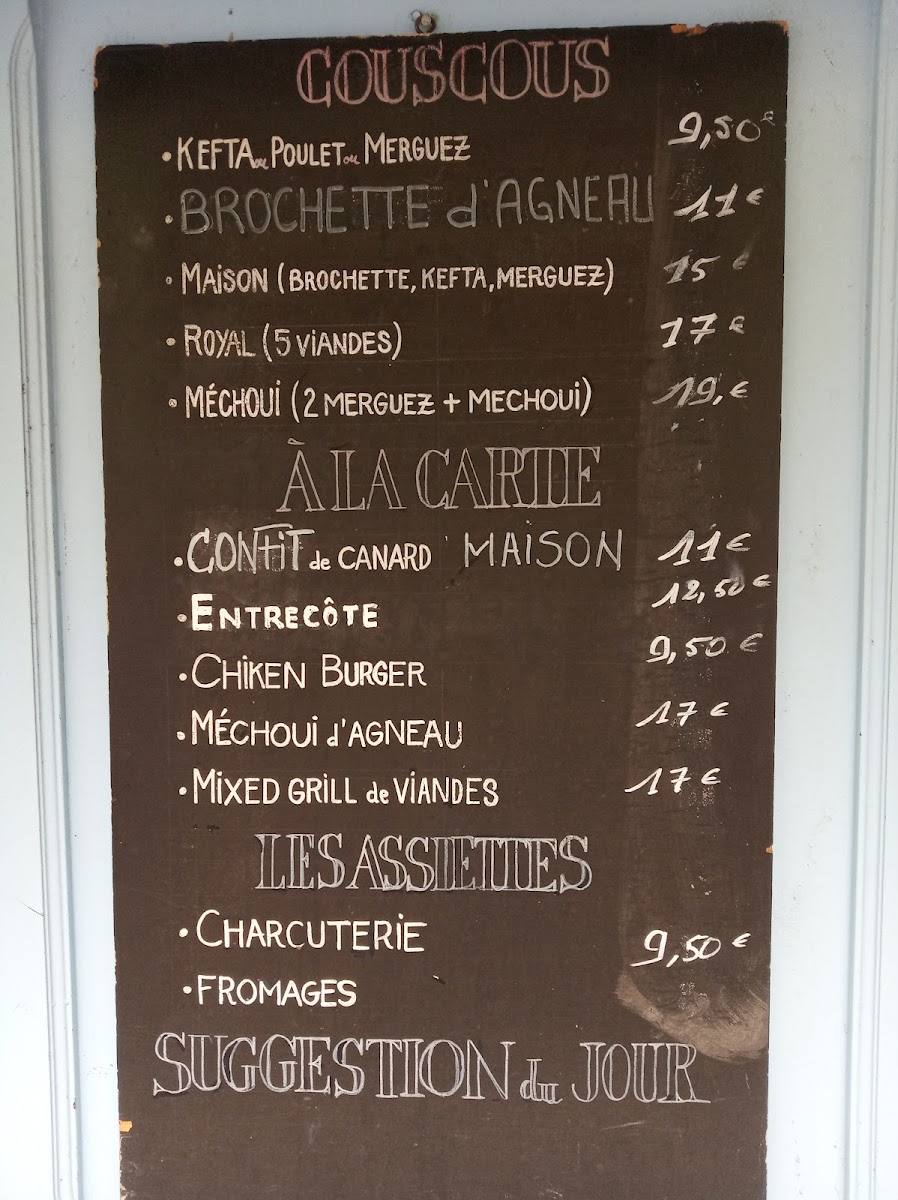 COUSCOUS
• KEFTA ou POULET ou MERGUEZ 9,50€
• BROCHETTE d'AGNEAU 11€
• MAISON (BROCHETTE, KEFTA, MERGUEZ) 15€
• ROYAL (5 VIANDES) 17€
• MÉCHOUI (2 MERGUEZ + MECHOUI) 19,€
À LA CARTE
• CONFIT de CANARD MAISON 11€
• ENTRECÔTE 12,50€
• CHIKEN BURGER 9,50€
• MÉCHOUI d'AGNEAU 17€
• MIXED GRILL de VIANDES 17€
LES ASSIETTES
• CHARCUTERIE
9,50€
• FROMAGES
SUGGESTION du JOUR